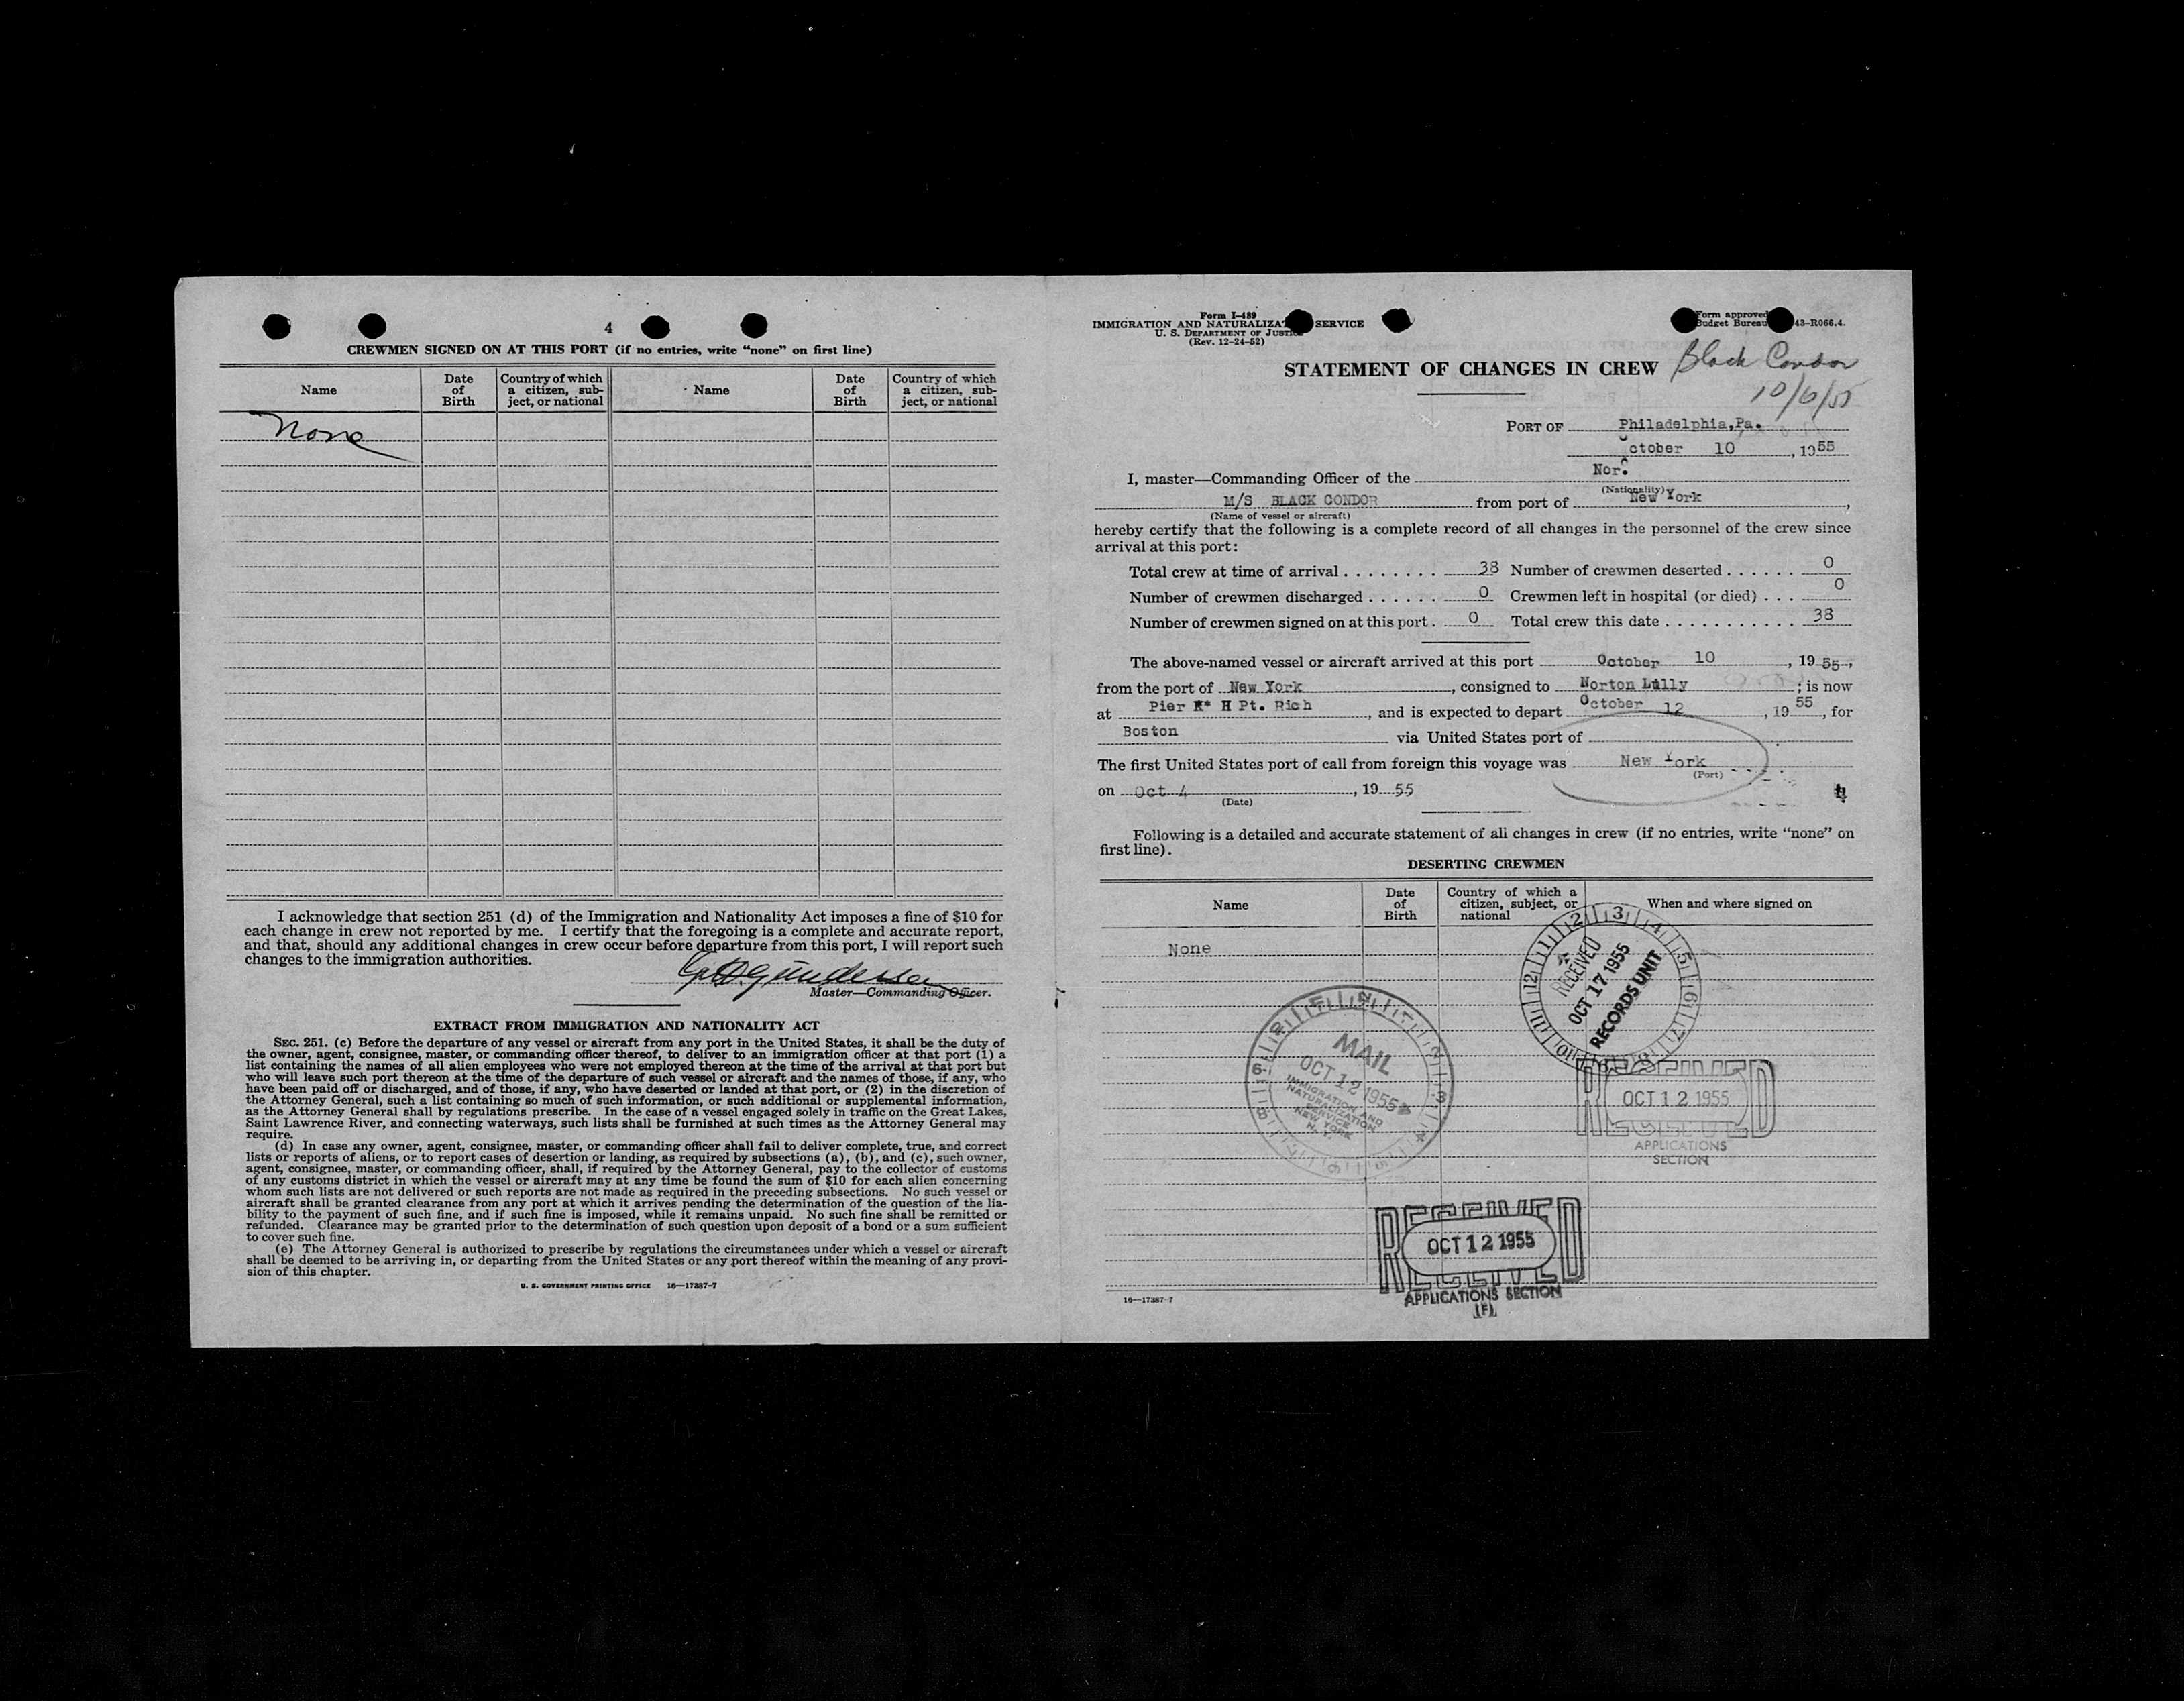 4
CREWMEN SIGNED ON AT THIS PORT (if no entries, write “none” on first line)
Name
Date of Birth
Country of which a citizen, subject, or national
Name
Date of Birth
Country of which a citizen, subject, or national
None
I acknowledge that section 251 (d) of the Immigration and Nationality Act imposes a fine of $10 for
each change in crew not reported by me. I certify that the foregoing is a complete and accurate report,
and that, should any additional changes in crew occur before departure from this port, I will report such
changes to the immigration authorities.
Gundersen
Master—Commanding Officer.
EXTRACT FROM IMMIGRATION AND NATIONALITY ACT
SEC. 251. (c) Before the departure of any vessel or aircraft from any port in the United States, it shall be the duty of
the owner, agent, consignee, master, or commanding officer thereof, to deliver to an immigration officer at that port (1) a
list containing the names of all alien employees who were not employed thereon at the time of the arrival at that port but
who will leave such port thereon at the time of the departure of such vessel or aircraft and the names of those, if any, who
have been paid off or discharged, and of those, if any, who have deserted or landed at that port, or (2) in the discretion of
the Attorney General, such a list containing so much of such information, or such additional or supplemental information,
as the Attorney General shall by regulations prescribe. In the case of a vessel engaged solely in traffic on the Great Lakes,
Saint Lawrence River, and connecting waterways, such lists shall be furnished at such times as the Attorney General may
require.
(d) In case any owner, agent, consignee, master, or commanding officer shall fail to deliver complete, true, and correct
lists or reports of aliens, or to report cases of desertion or landing, as required by subsections (a), (b), and (c), such owner,
agent, consignee, master, or commanding officer, shall, if required by the Attorney General, pay to the collector of customs
of any customs district in which the vessel or aircraft may at any time be found the sum of $10 for each alien concerning
whom such lists are not delivered or such reports are not made as required in the preceding subsections. No such vessel or
aircraft shall be granted clearance from any port at which it arrives pending the determination of the question of the lia-
bility to the payment of such fine, and if such fine is imposed, while it remains unpaid. No such fine shall be remitted or
refunded. Clearance may be granted prior to the determination of such question upon deposit of a bond or a sum sufficient
to cover such fine.
(e) The Attorney General is authorized to prescribe by regulations the circumstances under which a vessel or aircraft
shall be deemed to be arriving in, or departing from the United States or any port thereof within the meaning of any provi-
sion of this chapter.
U. S. GOVERNMENT PRINTING OFFICE 16—17387-7
Form I-489
IMMIGRATION AND NATURALIZA SERVICE
U. S. DEPARTMENT OF JUSTICE
(Rev. 12-24-52)
Form approved
Budget Bureau 43-R066.4.
STATEMENT OF CHANGES IN CREW Black Condor
10/6/55
PORT OF Philadelphia,Pa.
October 10, 1955
I, master—Commanding Officer of the Nor.
(Nationality)
M/S BLACK CONDOR from port of New York,
(Name of vessel or aircraft)
hereby certify that the following is a complete record of all changes in the personnel of the crew since
arrival at this port:
Total crew at time of arrival . . . . . . . . 38 Number of crewmen deserted . . . . . . 0
Number of crewmen discharged . . . . . . 0 Crewmen left in hospital (or died) . . . 0
Number of crewmen signed on at this port . 0 Total crew this date . . . . . . . . . . . 38
The above-named vessel or aircraft arrived at this port October 10, 1955,
from the port of New York, consigned to Norton Lilly; is now
at Pier H Pt. Rich, and is expected to depart October 12, 1955, for
Boston via United States port of
The first United States port of call from foreign this voyage was New York
(Port)
on Oct 4, 1955
(Date)
4
Following is a detailed and accurate statement of all changes in crew (if no entries, write “none” on
first line).
DESERTING CREWMEN
Name
Date of Birth
Country of which a citizen, subject, or national
When and where signed on
None
RECEIVED
OCT 17 1955
RECORDS UNIT
MAIL
OCT 12 1955
IMMIGRATION AND
NATURALIZATION
SERVICE
NEW YORK
N. Y.
RECEIVED
OCT 12 1955
APPLICATIONS
SECTION
RECEIVED
OCT 12 1955
APPLICATIONS SECTION
(F)
16—17387-7